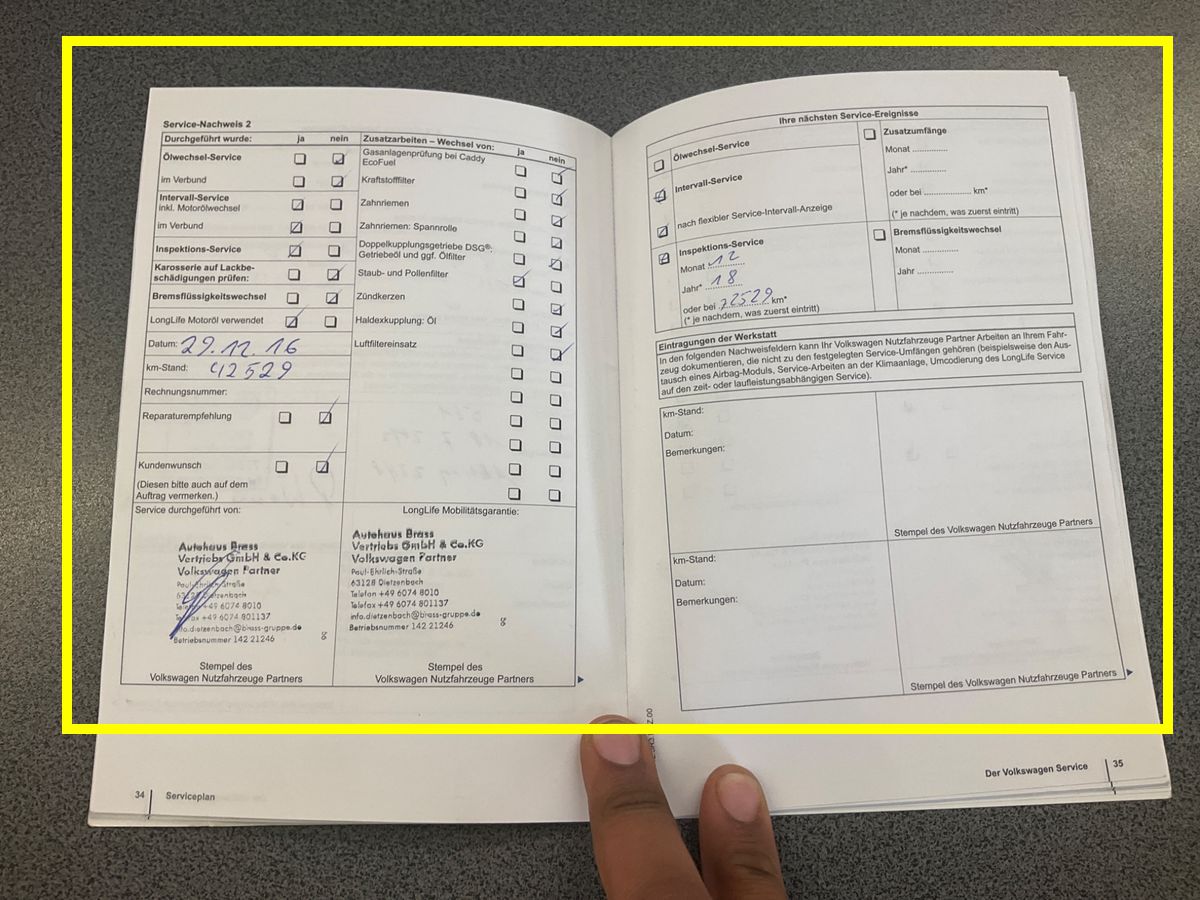 Service-Nachweis 2
Durchgeführt wurde: ja nein
Ölwechsel-Service
im Verbund
Intervall-Service
inkl. Motorölwechsel
im Verbund
Inspektions-Service
Karosserie auf Lackbe-
schädigungen prüfen:
Bremsflüssigkeitswechsel
LongLife Motoröl verwendet
Datum: 29.12.16
km-Stand: 42529
Rechnungsnummer:
Reparaturempfehlung
Kundenwunsch
(Diesen bitte auch auf dem
Auftrag vermerken.)
Zusatzarbeiten – Wechsel von: ja nein
Gasanlagenprüfung bei Caddy
EcoFuel
Kraftstofffilter
Zahnriemen
Zahnriemen: Spannrolle
Doppelkupplungsgetriebe DSG®:
Getriebeöl und ggf. Ölfilter
Staub- und Pollenfilter
Zündkerzen
Haldexkupplung: Öl
Luftfiltereinsatz
Service durchgeführt von:
Autohaus Brass
Vertriebs GmbH & Co.KG
Volkswagen Partner
Paul-Ehrlich-Straße
63128 Dietzenbach
Telefon +49 6074 8010
Telefax +49 6074 801137
info.dietzenbach@brass-gruppe.de
Betriebsnummer 142 21246
8
Stempel des
Volkswagen Nutzfahrzeuge Partners
LongLife Mobilitätsgarantie:
Autohaus Brass
Vertriebs GmbH & Co.KG
Volkswagen Partner
Paul-Ehrlich-Straße
63128 Dietzenbach
Telefon +49 6074 8010
Telefax +49 6074 801137
info.dietzenbach@brass-gruppe.de
Betriebsnummer 142 21246
8
Stempel des
Volkswagen Nutzfahrzeuge Partners
34 Serviceplan
Ihre nächsten Service-Ereignisse
Ölwechsel-Service
Intervall-Service
nach flexibler Service-Intervall-Anzeige
Inspektions-Service
Monat 12
Jahr* 18
oder bei 72529 km*
(* je nachdem, was zuerst eintritt)
Zusatzumfänge
Monat ..............
Jahr* ..............
oder bei ...................... km*
(* je nachdem, was zuerst eintritt)
Bremsflüssigkeitswechsel
Monat ..............
Jahr ..............
Eintragungen der Werkstatt
In den folgenden Nachweisfeldern kann Ihr Volkswagen Nutzfahrzeuge Partner Arbeiten an Ihrem Fahr-
zeug dokumentieren, die nicht zu den festgelegten Service-Umfängen gehören (beispielsweise den Aus-
tausch eines Airbag-Moduls, Service-Arbeiten an der Klimaanlage, Umcodierung des LongLife Service
auf den zeit- oder laufleistungsabhängigen Service).
km-Stand:
Datum:
Bemerkungen:
Stempel des Volkswagen Nutzfahrzeuge Partners
km-Stand:
Datum:
Bemerkungen:
Stempel des Volkswagen Nutzfahrzeuge Partners
Der Volkswagen Service 35